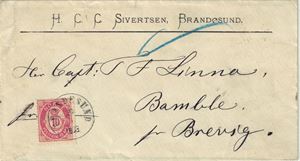 H. C. C. SIVERTSEN, BRANDØSUND.
Herr Capt: T F Linna,
Bamble.
pr Brevig.
10